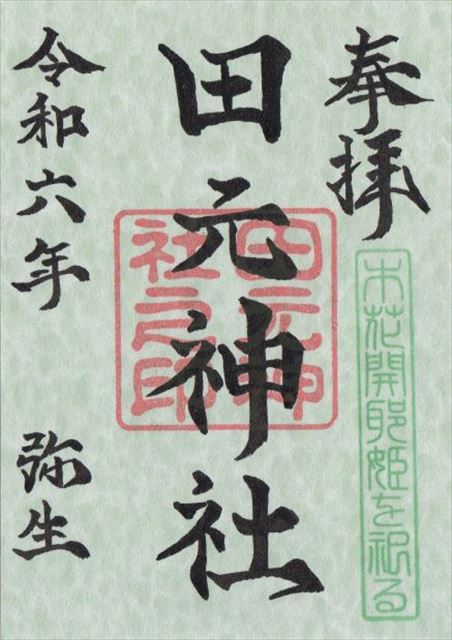 奉拝
木花開耶姫を祀る
田元神社
田元神社之印
令和六年 弥生